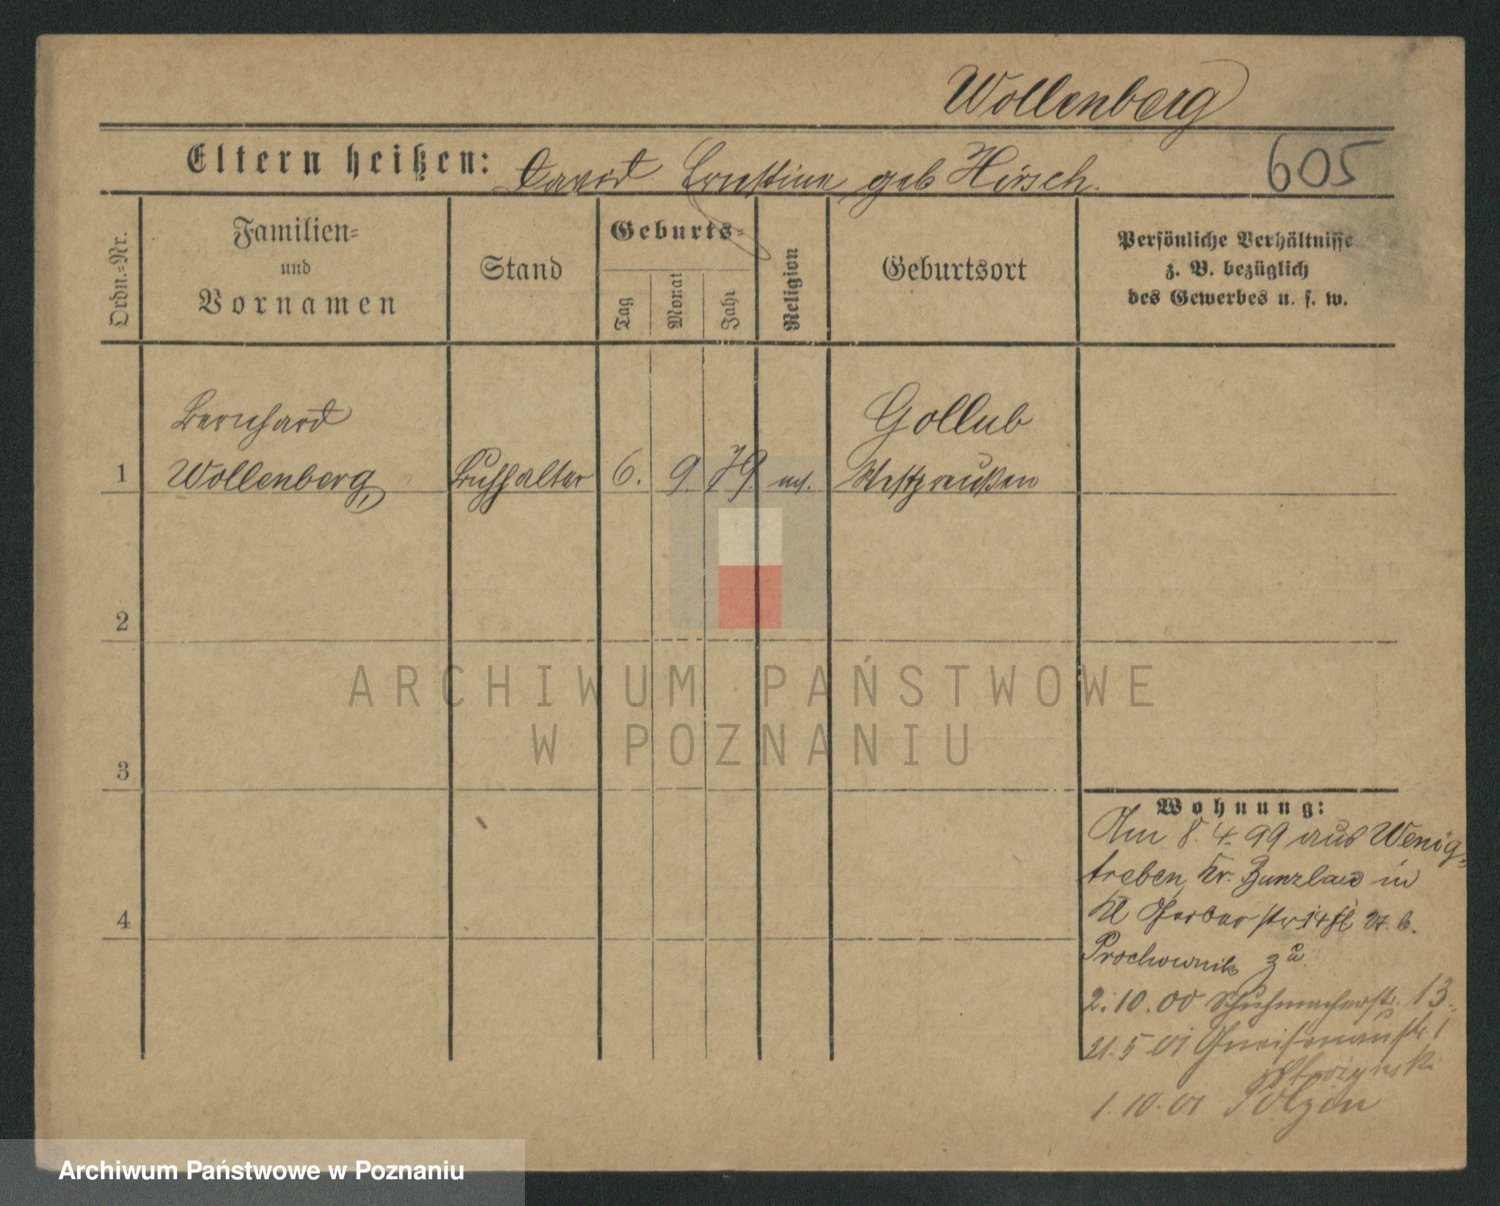 Wollenberg
Eltern heißen: David Ernstine geb Hirsch.
605
Ordn.=Nr.
Familien=
und
Vornamen
Stand
Geburts=
Tag
Monat
Jahr
Religion
Geburtsort
Persönliche Verhältnisse
z. B. bezüglich
des Gewerbes u. s. w.
Bernhard
Gollub
1 Wollenberg, Buchhalter 6. 9. 79. Westpreußen
2
ARCHIWUM PAŃSTWOWE
W POZNANIU
3
Wohnung:
Am 8. 4. 99 aus Wenig=
treben, Kr. Bunzlau in
Kl Gerber str 14
4
Prochownik zu
2. 10. 00 Schuhmacherstr. 13.
21. 5 01 Gneisenaustr 1
1. 10. 01 Polzin
Archiwum Państwowe w Poznaniu